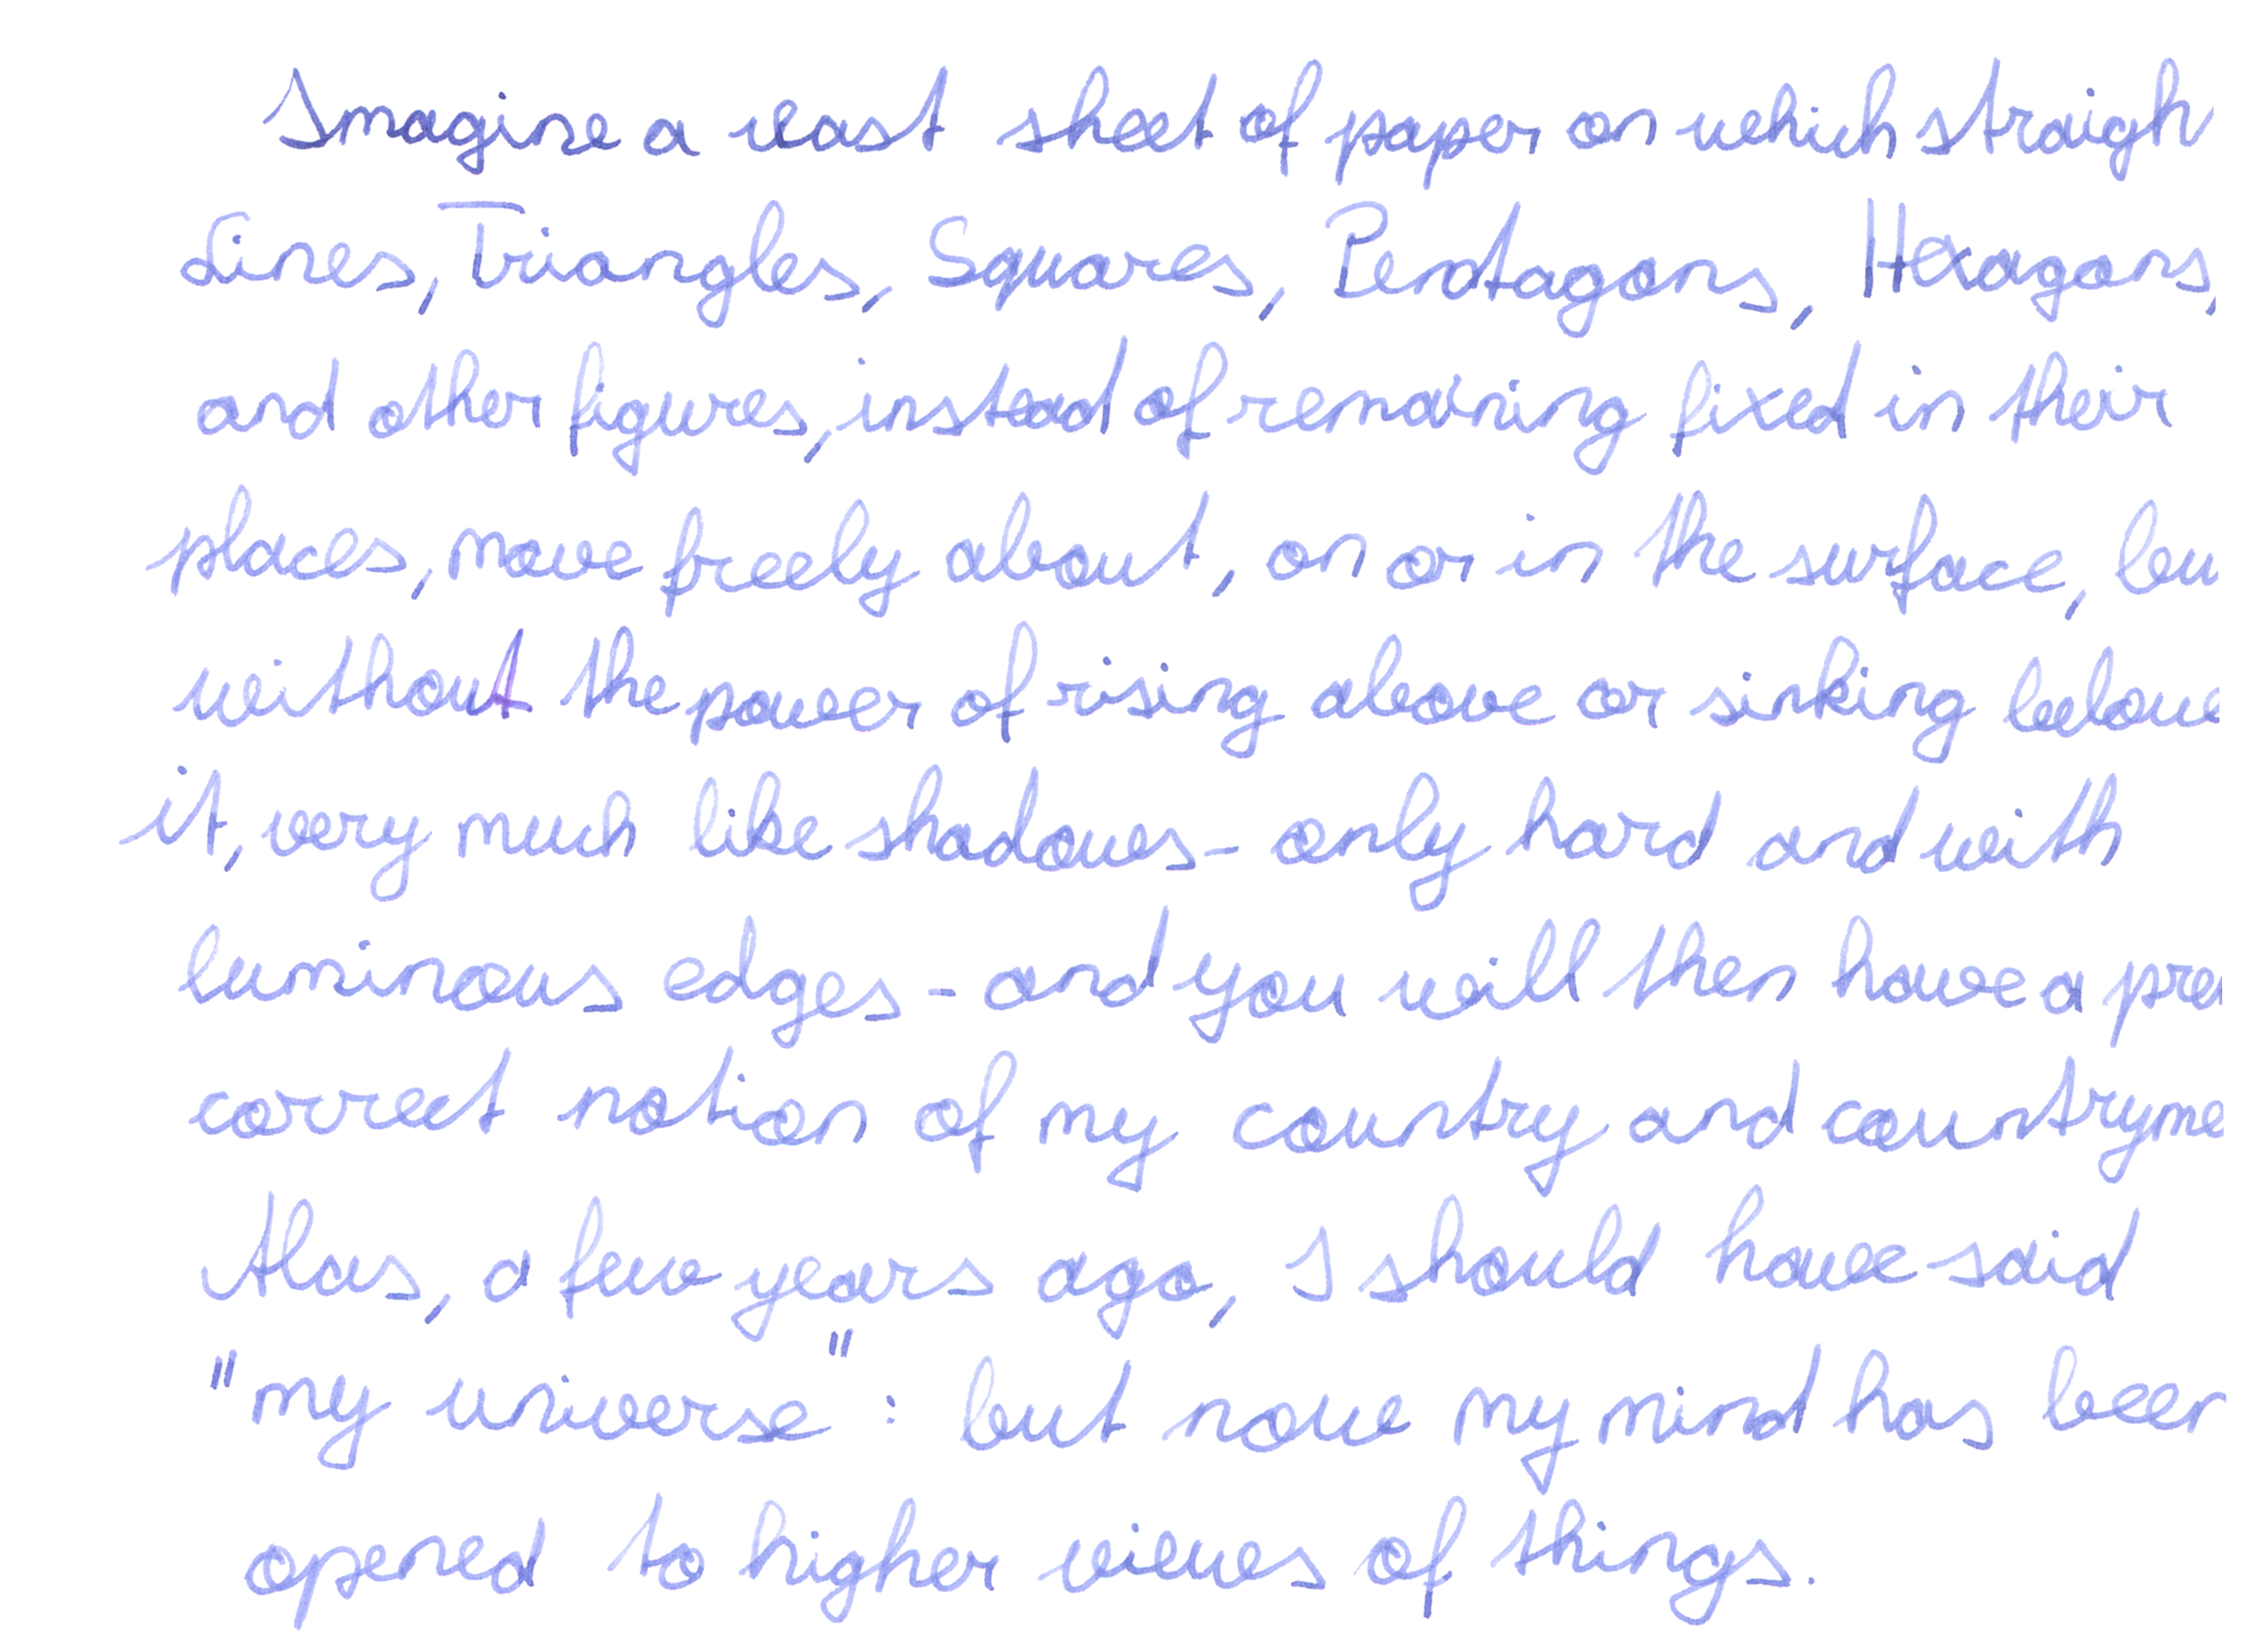 Imagine a vast sheet of paper on which straigh
Lines, Triangles, Squares, Pentagons, Hexagons,
and other figures, instead of remaining fixed in their
places, move freely about, on or in the surface, bu
without the power of rising above or sinking below
it, very much like shadows - only hard and with
luminous edges - and you will then have a pre
correct notion of my country and countryme
Alas, a few years ago, I should have said
"my universe" : but now my mind has been
opened to higher views of things.